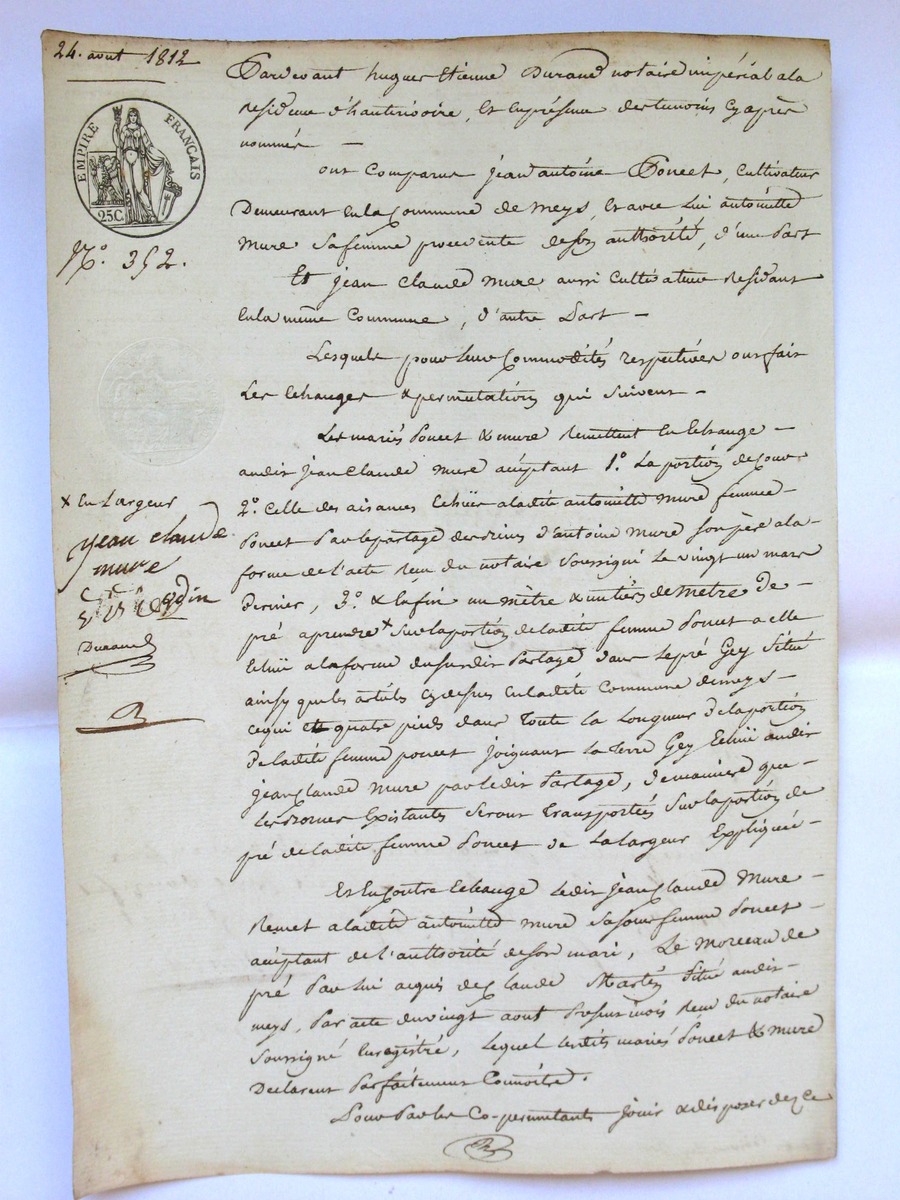 24. aout 1812
EMPIRE FRANÇAIS
25C
N.° 352.
Pardevant hugues Etienne Durand notaire impérial a la
residence d'hauterivoire, Et en présence des temoins cy après
nommés —
ont Comparus jean antoine Poncet, Cultivateur
Demeurant en la Commune de meys, et avec Lui antoinette
Mure Sa femme procedente de son authorité, d'une Part
Et jean Claude mure aussi Cultivateur Residant
En la même Commune, d'autre Part —
Lesquels pour leurs Commodités respectives ont fait
Les Echanges & permutations qui Suivent —
Les mariés Poncet & mure Remettent En Echange —
audit jean Claude mure acceptant 1.° La portion de Cour
2.° Celle des aisances Echües a ladite antoinette Mure femme —
Poncet Par le partage des biens d'antoine Mure Son père a la —
forme de l'acte Reçu du notaire Soussigné Le vingt un mars
Dernier, 3.° & Enfin un mètre & un tiers de mètre De —
pré a prendre x Sur la portion de ladite femme Poncet a elle
Echüe a la forme du susdit Partage dans Le pré Gey Situé
ainsy que les articles cy dessus En ladite Commune de meys —
ce qui quatre pieds dans Toute La Longueur De la portion
De ladite femme poncet joignant La Terre Gey Echüe audit
jean Claude Mure par le dit Partage, De maniere que —
les Bornes Existantes Seront Transportées Sur la portion de
pré de ladite femme Poncet de La largeur Expliquée —
x En Largeur
jean claude
mure
Durand
Et En Contre Echange Ledit jean Claude Mure —
Remet a ladite antoinette mure Sa sœur femme Poncet —
acceptant de l'authorité de son mari, Le Morceau de
pré Par Lui acquis de Claude Situé audit —
meys, Par acte du vingt aout Present mois Reçu du notaire
Soussigné Enregistré, Lequel Lesdits mariés Poncet & Mure
Declarent Parfaitement Connoitre.
Pour Par les Co-permutants jouir & disposer de Ce